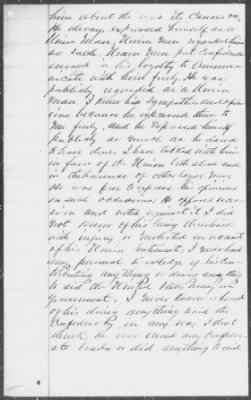 him about the war its Causes &c,
He always expressed himself as a
Union Man, Union Men regarded him
as such. Union Men had Confidence
enough in his loyalty to Commu-
nicate with him freely. He was
publicly regarded as a Union
Man. I knew his sympathies and opin-
ions because he expressed them to
me freely, and he exposed himself
publicly as much as he dared
to have done. I have talked with him
in favor of the Union both alone and
in the presence of other loyal men
He was free to express his opinions
on such occasions. He opposed seces-
sion and voted against it. I did
not know of his being threatened
with injury or molested on account
of his Union sentiments, I never had
any personal knowledge of his con-
tributing anything or doing anything
to aid the United States Army or
Government, I never knew or heard
of his doing anything to aid the
Confederacy in any way, I dont
think he ever owned any Confeder-
ate bonds or did anything to aid